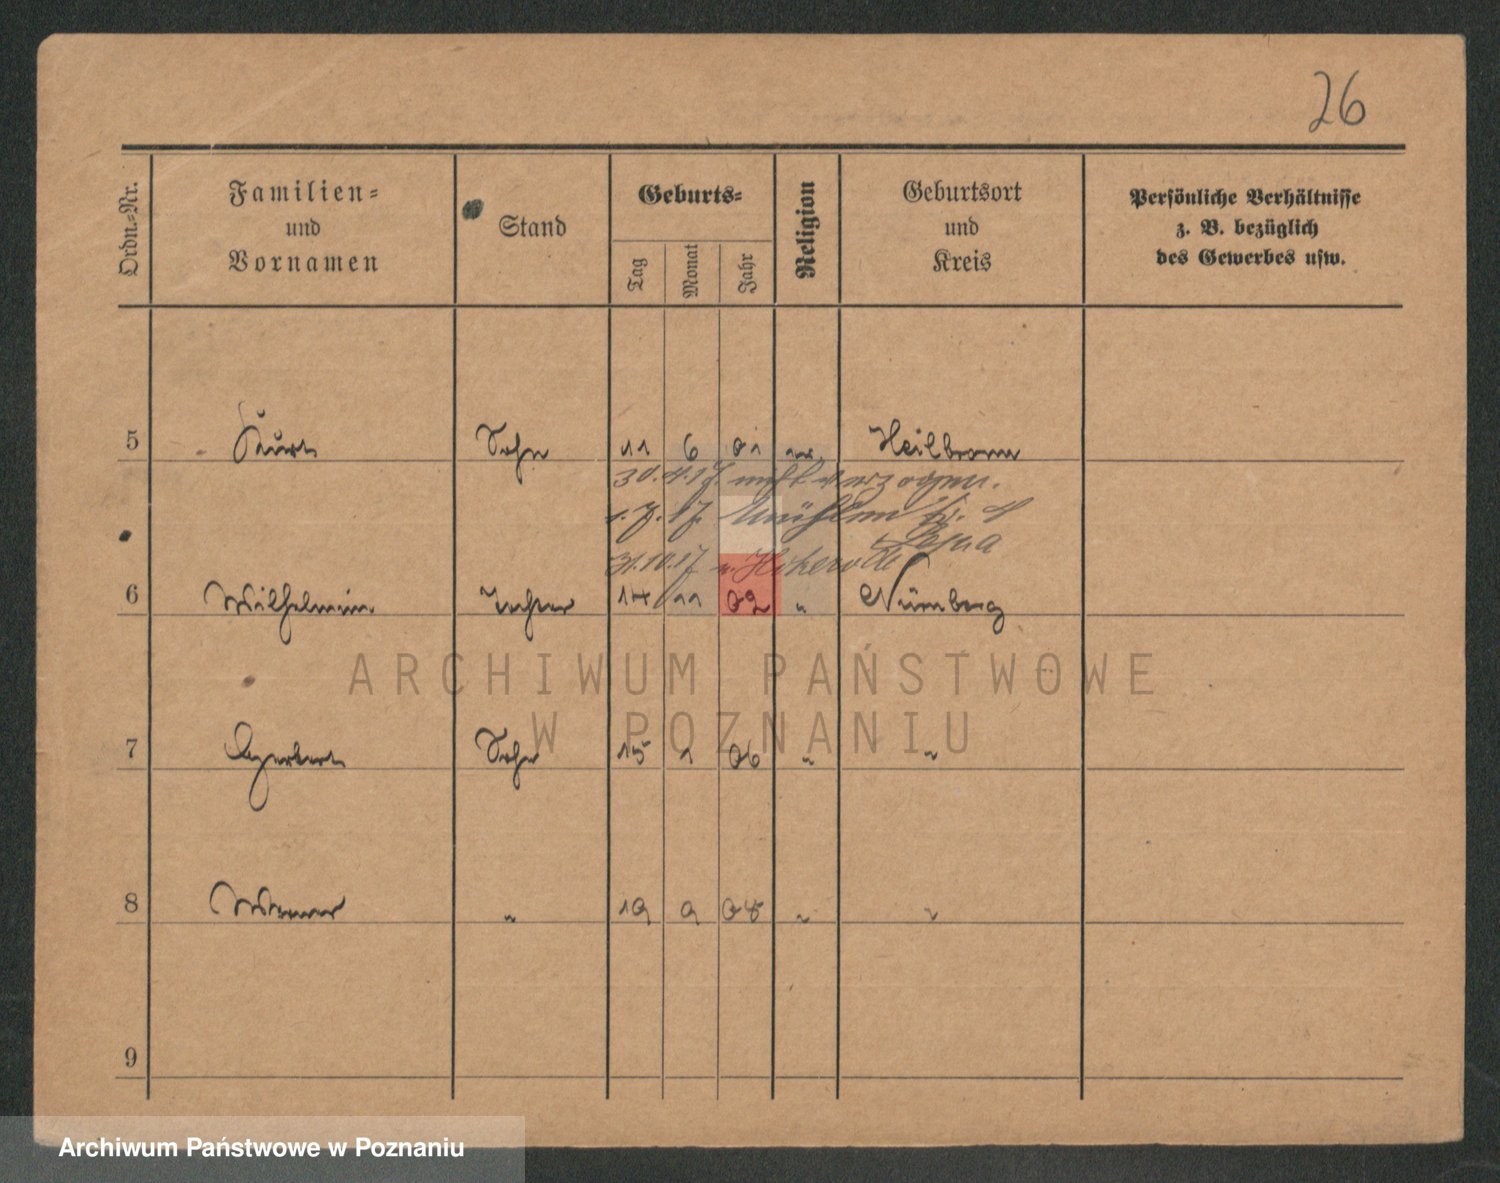 26
Ordn.-Nr.
Familien-
und
Vornamen
Stand
Geburts-
Tag
Monat
Jahr
Religion
Geburtsort
und
Kreis
Persönliche Verhältnisse
z. B. bezüglich
des Gewerbes usw.
5 Kurt Sohn 11 6 01 Heilbronn
30.4.17 nicht verzogen.
1.7.17. Mühlen
31.10.17
6 Wilhelmin Tochter 14 11 02 " Nürnberg
ARCHIWUM PAŃSTWOWE
W POZNANIU
7 Herbert Sohn 15 1 06 " "
8 Werner " 19 9 08 " "
9
Archiwum Państwowe w Poznaniu